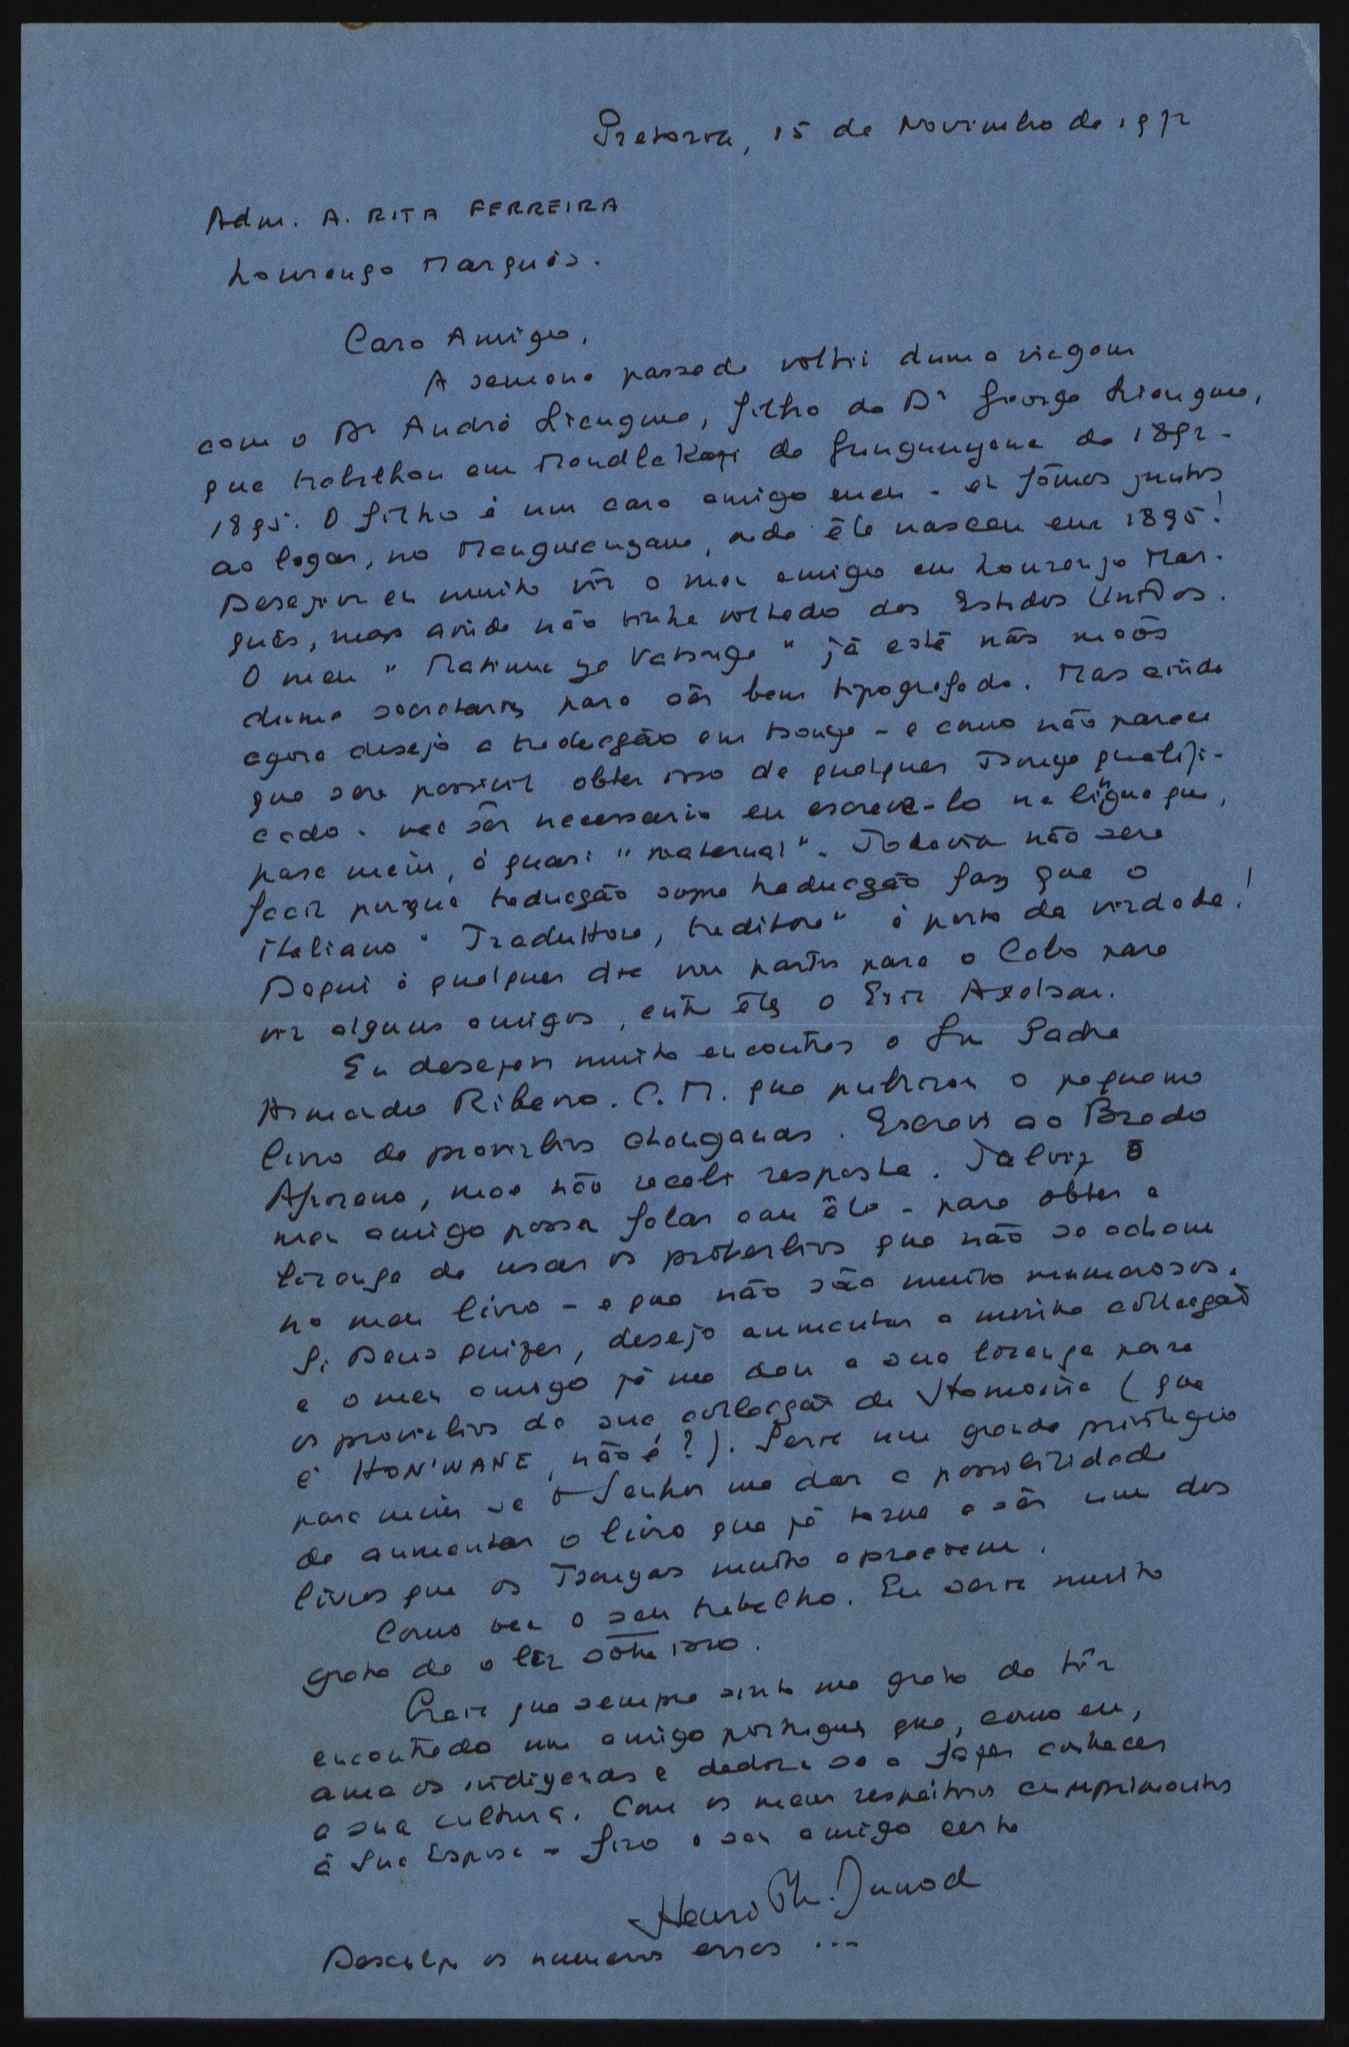 Pretoria, 15 de Novimbro de 1972
Adm. A. RITA FERREIRA
Lourenço Marquês.
Caro Amigo,
A semana passada voltei duma viagem
com o Dr André Liengme, filho do Dr George Liengme,
que trabalhou em Mandlakazi do Gungunyana de 1892-
1895. O filho é um caro amigo meu - e fômos juntos
ao logar, no Manguenyane, onde êle nasceu em 1895!
Desejava eu muito vêr o meu amigo em Lourenço Mar-
quês, mas ainda não tinha voltado dos Estados Unidos.
O meu "Matimu ya Vatsonga" já está nas maõs
duma secretaria para sêr bem tipografado. Mas ainda
agora desejo a traducção em tsonga - e como não parece
que sera possivel obter isso de qualquer Tsonga qualifi-
cado. vae sêr necessario eu escreve-lo na lingua que,
para mim, é quasi "maternal". Todavia não sera
facil porque traducção sobre traducção faz que o
italiano "Traduttore, traditore" é perto da verdade!
Daqui á qualquer dia vou partir para o Cabo para
vêr alguns amigos, entre êles o Eric Axelson.
Eu desejava muito encontrar o Snr Padre
Armando Ribeiro. C. M. que publicou o pequeno
livro de proverbios changanas. Escrevi ao Brado
Africano, mas não recebi resposta. Talvez o
meu amigo possa falar com êle - para obter a
licença de usar os proverbios que não se acham
no meu livro - e que não são muito numerosos.
Si Deus quizer, desejo aumentar a minha collecçaõ
e o meu amigo já me deu a sua licença para
os proverbios da sua collecçaõ de Homoíne (que
é HON'WANE, não é?). Seria um grande privilegio
para mim se o Senhor me der a possibilidade
de aumentar o livro que já torna a sêr um dos
livros que os Tsongas muito apreciem.
Como vae o seu trabalho. Eu seria muito
grato de o lêr sobre isso.
Creia que sempre sinto me grato de têr
encontrado um amigo portuguez que, como eu,
ama os indigenas e dedica se a fazer conhecer
a sua cultura. Com os meus respeitosos cumprimentos
á Sua Esposa - fico o seu amigo certo
Henri Ph. Junod
Desculpe os numeros erros ...